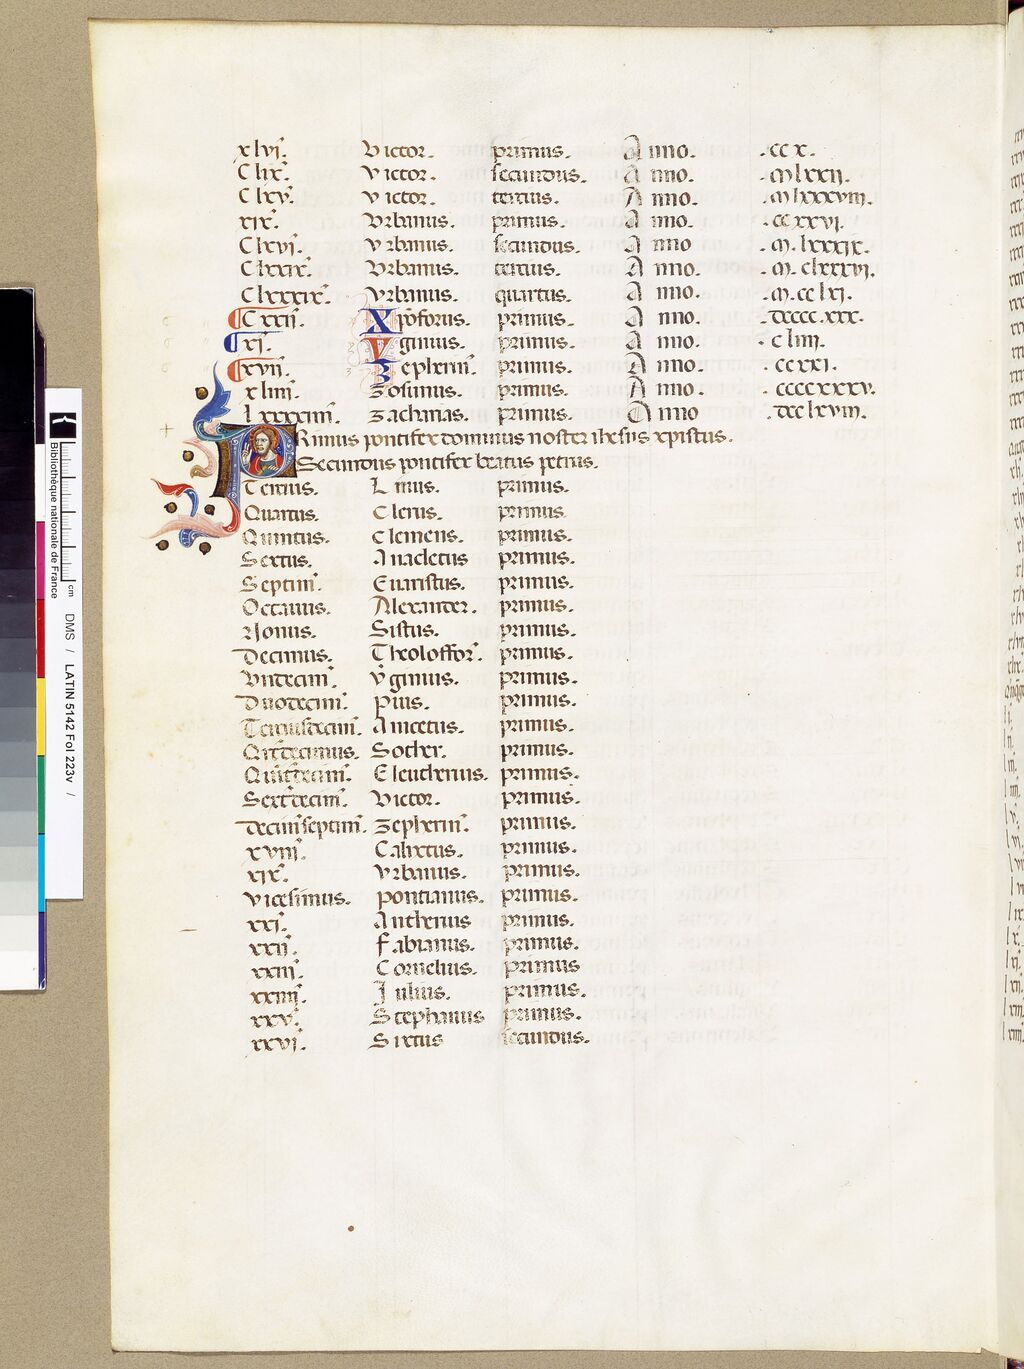 xlvi. Victor. primus. Anno. .cc x.
Clix. Victor. secundus. Anno. .mlxxij.
Clxv. Victor. tercius. Anno. .mlxxxviii.
xix. Vrbanus. primus. Anno. .ccxxvj.
Clxvi. Vrbanus. secundus. Anno .m.lxxxix.
Clxxix. Vrbanus. tercius. Anno. .m.clxxxvj.
Clxxxix. Vrbanus. quartus. Anno. .m.cclxi.
Cxxij. Xp̄oforus. primus. Anno. .dcccc.xxx.
xj. Yginius. primus. Anno. .cliiij.
xvij. Zepherin̄. primus. Anno. .ccxxi.
xliiij. Zosimus. primus. Anno. .ccccxxxv.
Lxxxxiiij. Zacharias. primus. Anno .dcclxviii.
PRimus pontifex dominus noster ihesus xpistus.
Secundus pontifex beatus petrus.
Tercius. Linus. primus.
Quartus. Cletus. primus.
Quintus. Clemens. primus.
Sextus. Anacletus primus.
Septim̄. Euaristus. primus.
Octauus. Alexander. primus.
Nonus. Sistus. primus.
Decimus. Theloffor̄. primus.
Vndecim̄. Yginius. primus.
Duodecim̄. Pius. primus.
Terciusdecim̄. Anicetus. primus.
Qͣrtdecimus. Sother. primus.
Quīt̄decim̄. Eleutherius. primus.
Sext̄decim̄. Victor. primus.
Decim̄septim̄. Zepherin̄. primus.
xviij. Calixtus. primus.
xix. Vrbanus. primus.
Vicesimus. pontianus. primus.
xxj. Antherius primus.
xxij. Fabianus. primus.
xxiij. Cornelius. primus
xxiiij. Julius. primus.
xxv. Stephanus primus.
xxvj. Sixtus secundus.
Bibliothèque nationale de France
cm
DMS / LATIN 5142 Fol 223v /